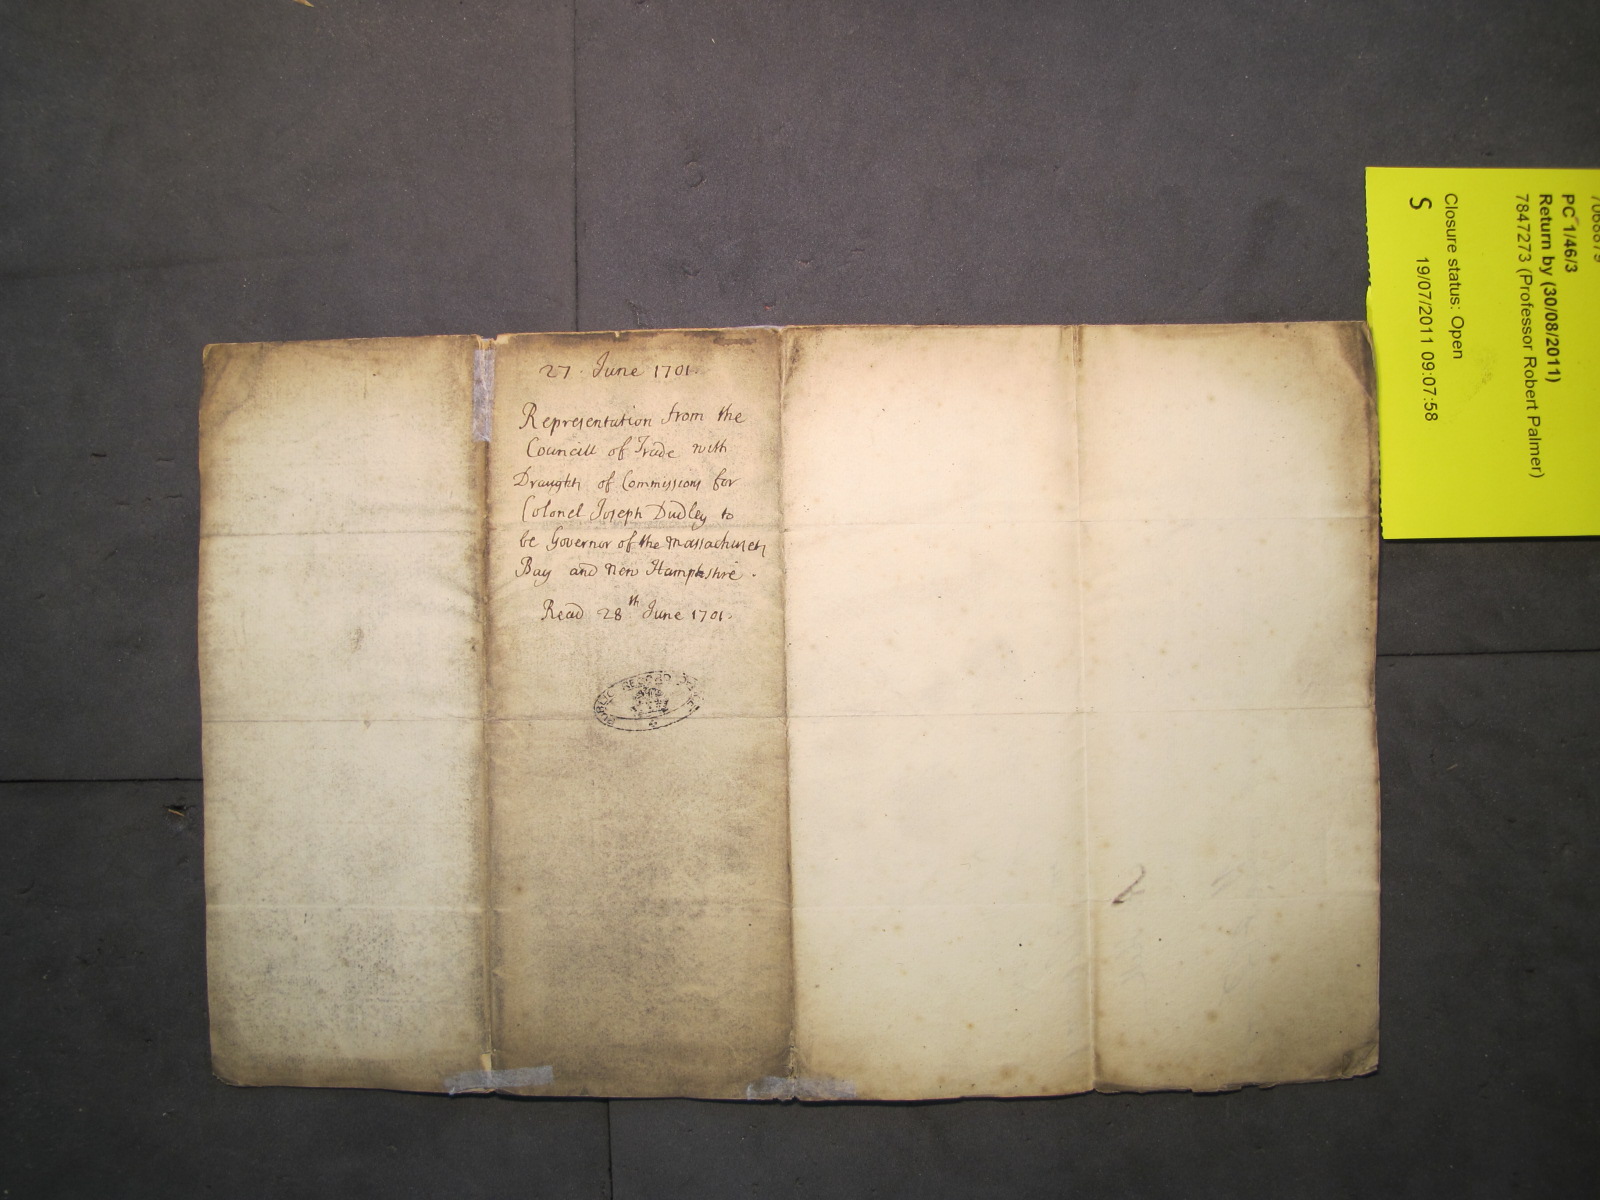 27. June 1701.
Representation from the
Councill of Trade with
Draughts of Commissions for
Colonel Joseph Dudley to
be Governor of the Massachusets
Bay and New Hampshire.
Read 28th June 1701.
PUBLIC RECORD OFFICE
PC 1/46/3
Return by (30/08/2011)
7847273 (Professor Robert Palmer)
Closure status: Open
S 19/07/2011 09:07:58